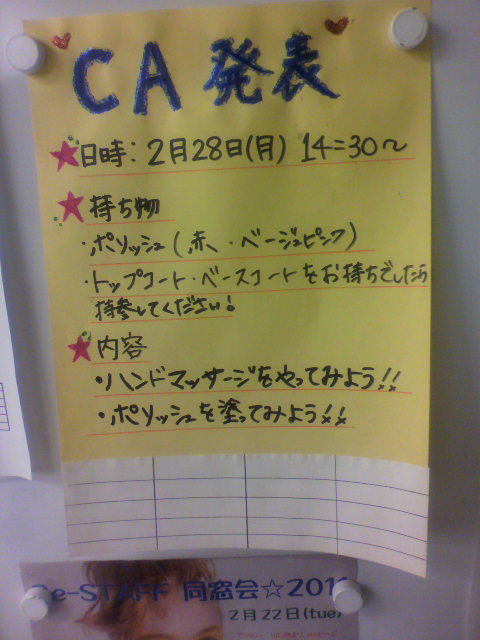 CA 発表
日時: 2月28日(月) 14:30～
持ち物
・ポリッシュ(赤・ベージュピンク)
・トップコート・ベースコートをお持ちでしたら
持参してください!
内容
・ハンドマッサージをやってみよう!!
・ポリッシュを塗ってみよう!!
Re-STAFF 同窓会☆2011
2月22日(tue)